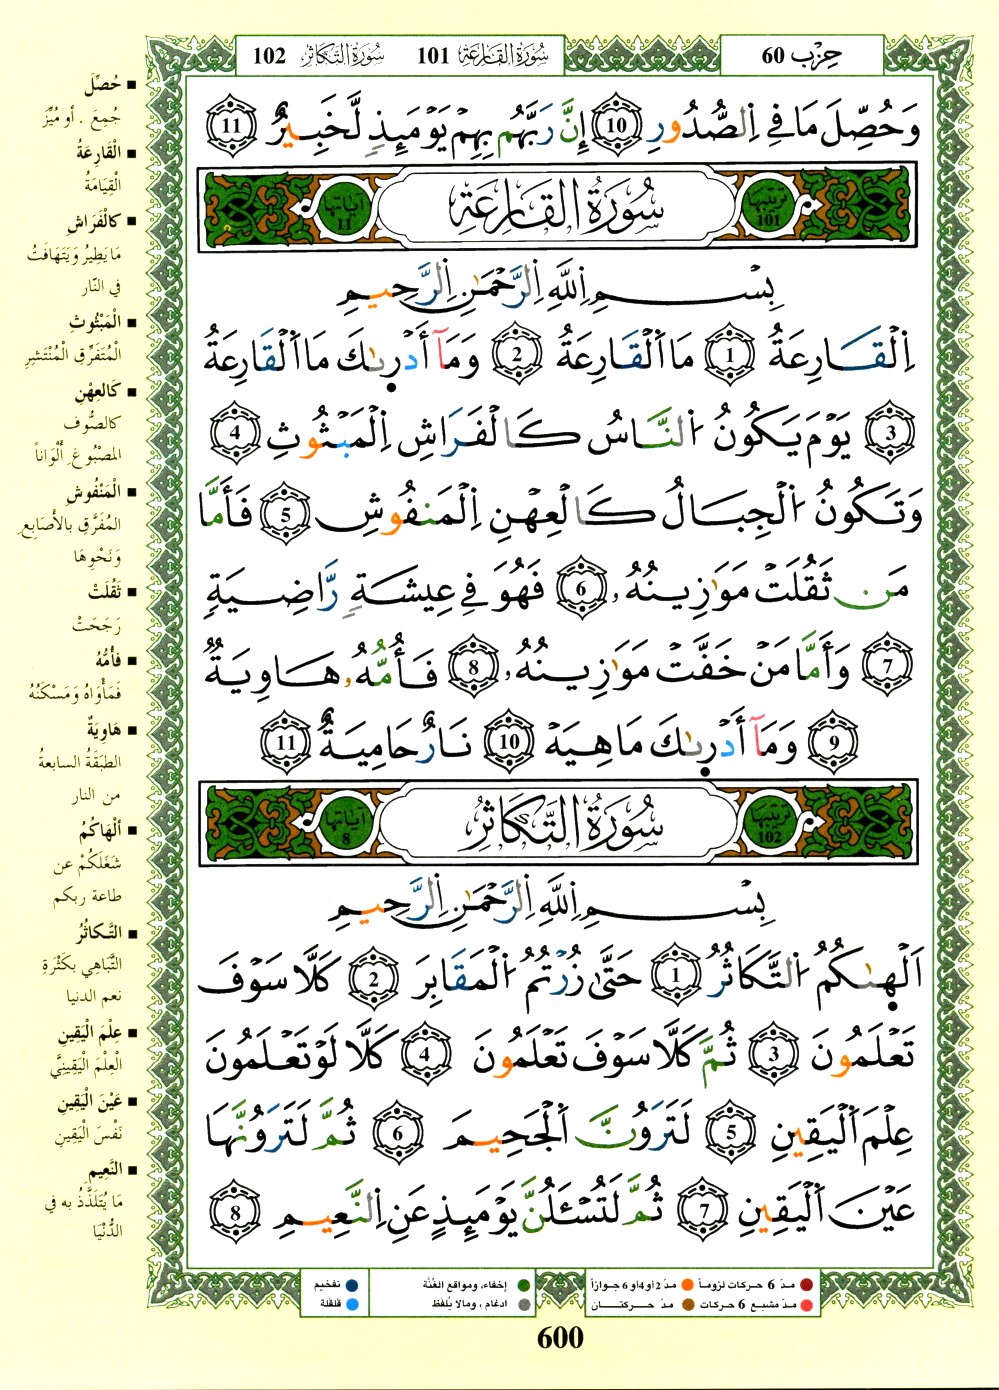 حِزْب 60
سُورَةُ القَارِعَة 101 سُورَةُ التَّكَاثُر 102
وَحُصِّلَ مَا فِي اِ۬لصُّدُورِ 10 إِنَّ رَبَّهُم بِهِمْ يَوْمَئِذٖ لَّخَبِيرٌ 11
ترتيبها 101 سُورَةُ القَارِعَة اياتها 11
بِسْمِ اِ۬للَّهِ اِ۬لرَّحْمَٰنِ اِ۬لرَّحِيمِ
اِ۬لْقَارِعَةُ 1 مَا اَ۬لْقَارِعَةُ 2 وَمَآ أَدْر۪يٰكَ مَا اَ۬لْقَارِعَةُ
3 يَوْمَ يَكُونُ اُ۬لنَّاسُ كَالْفَرَاشِ اِ۬لْمَبْثُوثِ 4
وَتَكُونُ اُ۬لْجِبَالُ كَالْعِهْنِ اِ۬لْمَنفُوشِ 5 فَأَمَّا
مَن ثَقُلَتْ مَوَٰزِينُهُۥ 6 فَهُوَ فِي عِيشَةٖ رَّاضِيَةٖ
7 وَأَمَّا مَنْ خَفَّتْ مَوَٰزِينُهُۥ 8 فَأُمُّهُۥ هَاوِيَةٞ
9 وَمَآ أَدْر۪يٰكَ مَا هِيَهْ 10 نَارٌ حَامِيَةٌ 11
ترتيبها 102 سُورَةُ التَّكَاثُر اياتها 8
بِسْمِ اِ۬للَّهِ اِ۬لرَّحْمَٰنِ اِ۬لرَّحِيمِ
أَلْه۪يٰكُمُ اُ۬لتَّكَاثُرُ 1 حَتَّىٰ زُرْتُمُ اُ۬لْمَقَابِرَ 2 كَلَّا سَوْفَ
تَعْلَمُونَ 3 ثُمَّ كَلَّا سَوْفَ تَعْلَمُونَ 4 كَلَّا لَوْ تَعْلَمُونَ
عِلْمَ اَ۬لْيَقِينِ 5 لَتَرَوُنَّ اَ۬لْجَحِيمَ 6 ثُمَّ لَتَرَوُنَّهَا
عَيْنَ اَ۬لْيَقِينِ 7 ثُمَّ لَتُسْـَٔلُنَّ يَوْمَئِذٍ عَنِ اِ۬لنَّعِيمِ 8
■ حُصِّلَ
جُمِعَ . أو مُيِّزَ
■ الْقَارِعَةُ
الْقِيَامَةُ
■ كالْفَرَاشِ
مَا يَطِيرُ وَيَتَهَافَتُ
في النّار
■ الْمَبْثُوثِ
الْمُتَفَرِّقِ الْمُنْتَشِرِ
■ كَالعِهْنِ
كالصُّوف
المصْبُوغِ أَلْوَاناً
■ الْمَنْفُوشِ
المُفَرَّقِ بالأَصَابِعِ
وَنَحْوِهَا
■ ثَقُلَتْ
رَجَحَتْ
■ فأُمُّهُ
فَمَأْوَاهُ وَمَسْكَنُهُ
■ هَاوِيَةٌ
الطبَقَةُ السابعةُ
من النار
■ ألْهَاكُمُ
شَغَلَكُمْ عن
طاعة ربكم
■ التَّكاثُرُ
التَّبَاهِي بكَثْرَةِ
نعم الدنيا
■ عِلْمَ الْيَقِينِ
الْعِلْمَ الْيَقِينِيَّ
■ عَيْنَ الْيَقِينِ
نَفْسَ الْيَقِينِ
■ النَّعِيمِ
مَا يُتَلَذَّذُ به في
الدُّنْيَا
مـدّ 6 حركات لزوماً مدّ 2 أو 4 أو 6 جوازاً إخفاء، ومواقع الغُنَّة تفخيم
مـدّ مشبع 6 حركات مدّ حـــركتـــان ادغام ، ومالا يُلفَظ قلقلة
600